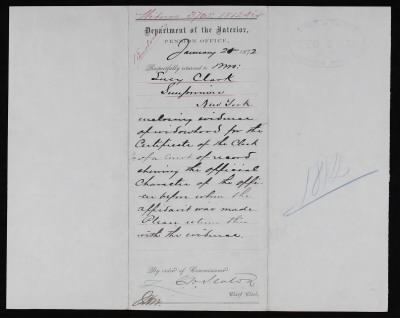 Department of the Interior,
PENSION OFFICE,
January 28 1872
Respectfully returned to Mrs:
Lucy Clark
New York
enclosing evidence
of widowhood for the
Certificate of the Clerk
of a Court of record
showing the official
Character of the offi-
cer before whom the
affidavit was made
Please return this
with the evidence.
By order of Commissioner
Chief Clerk.
1812